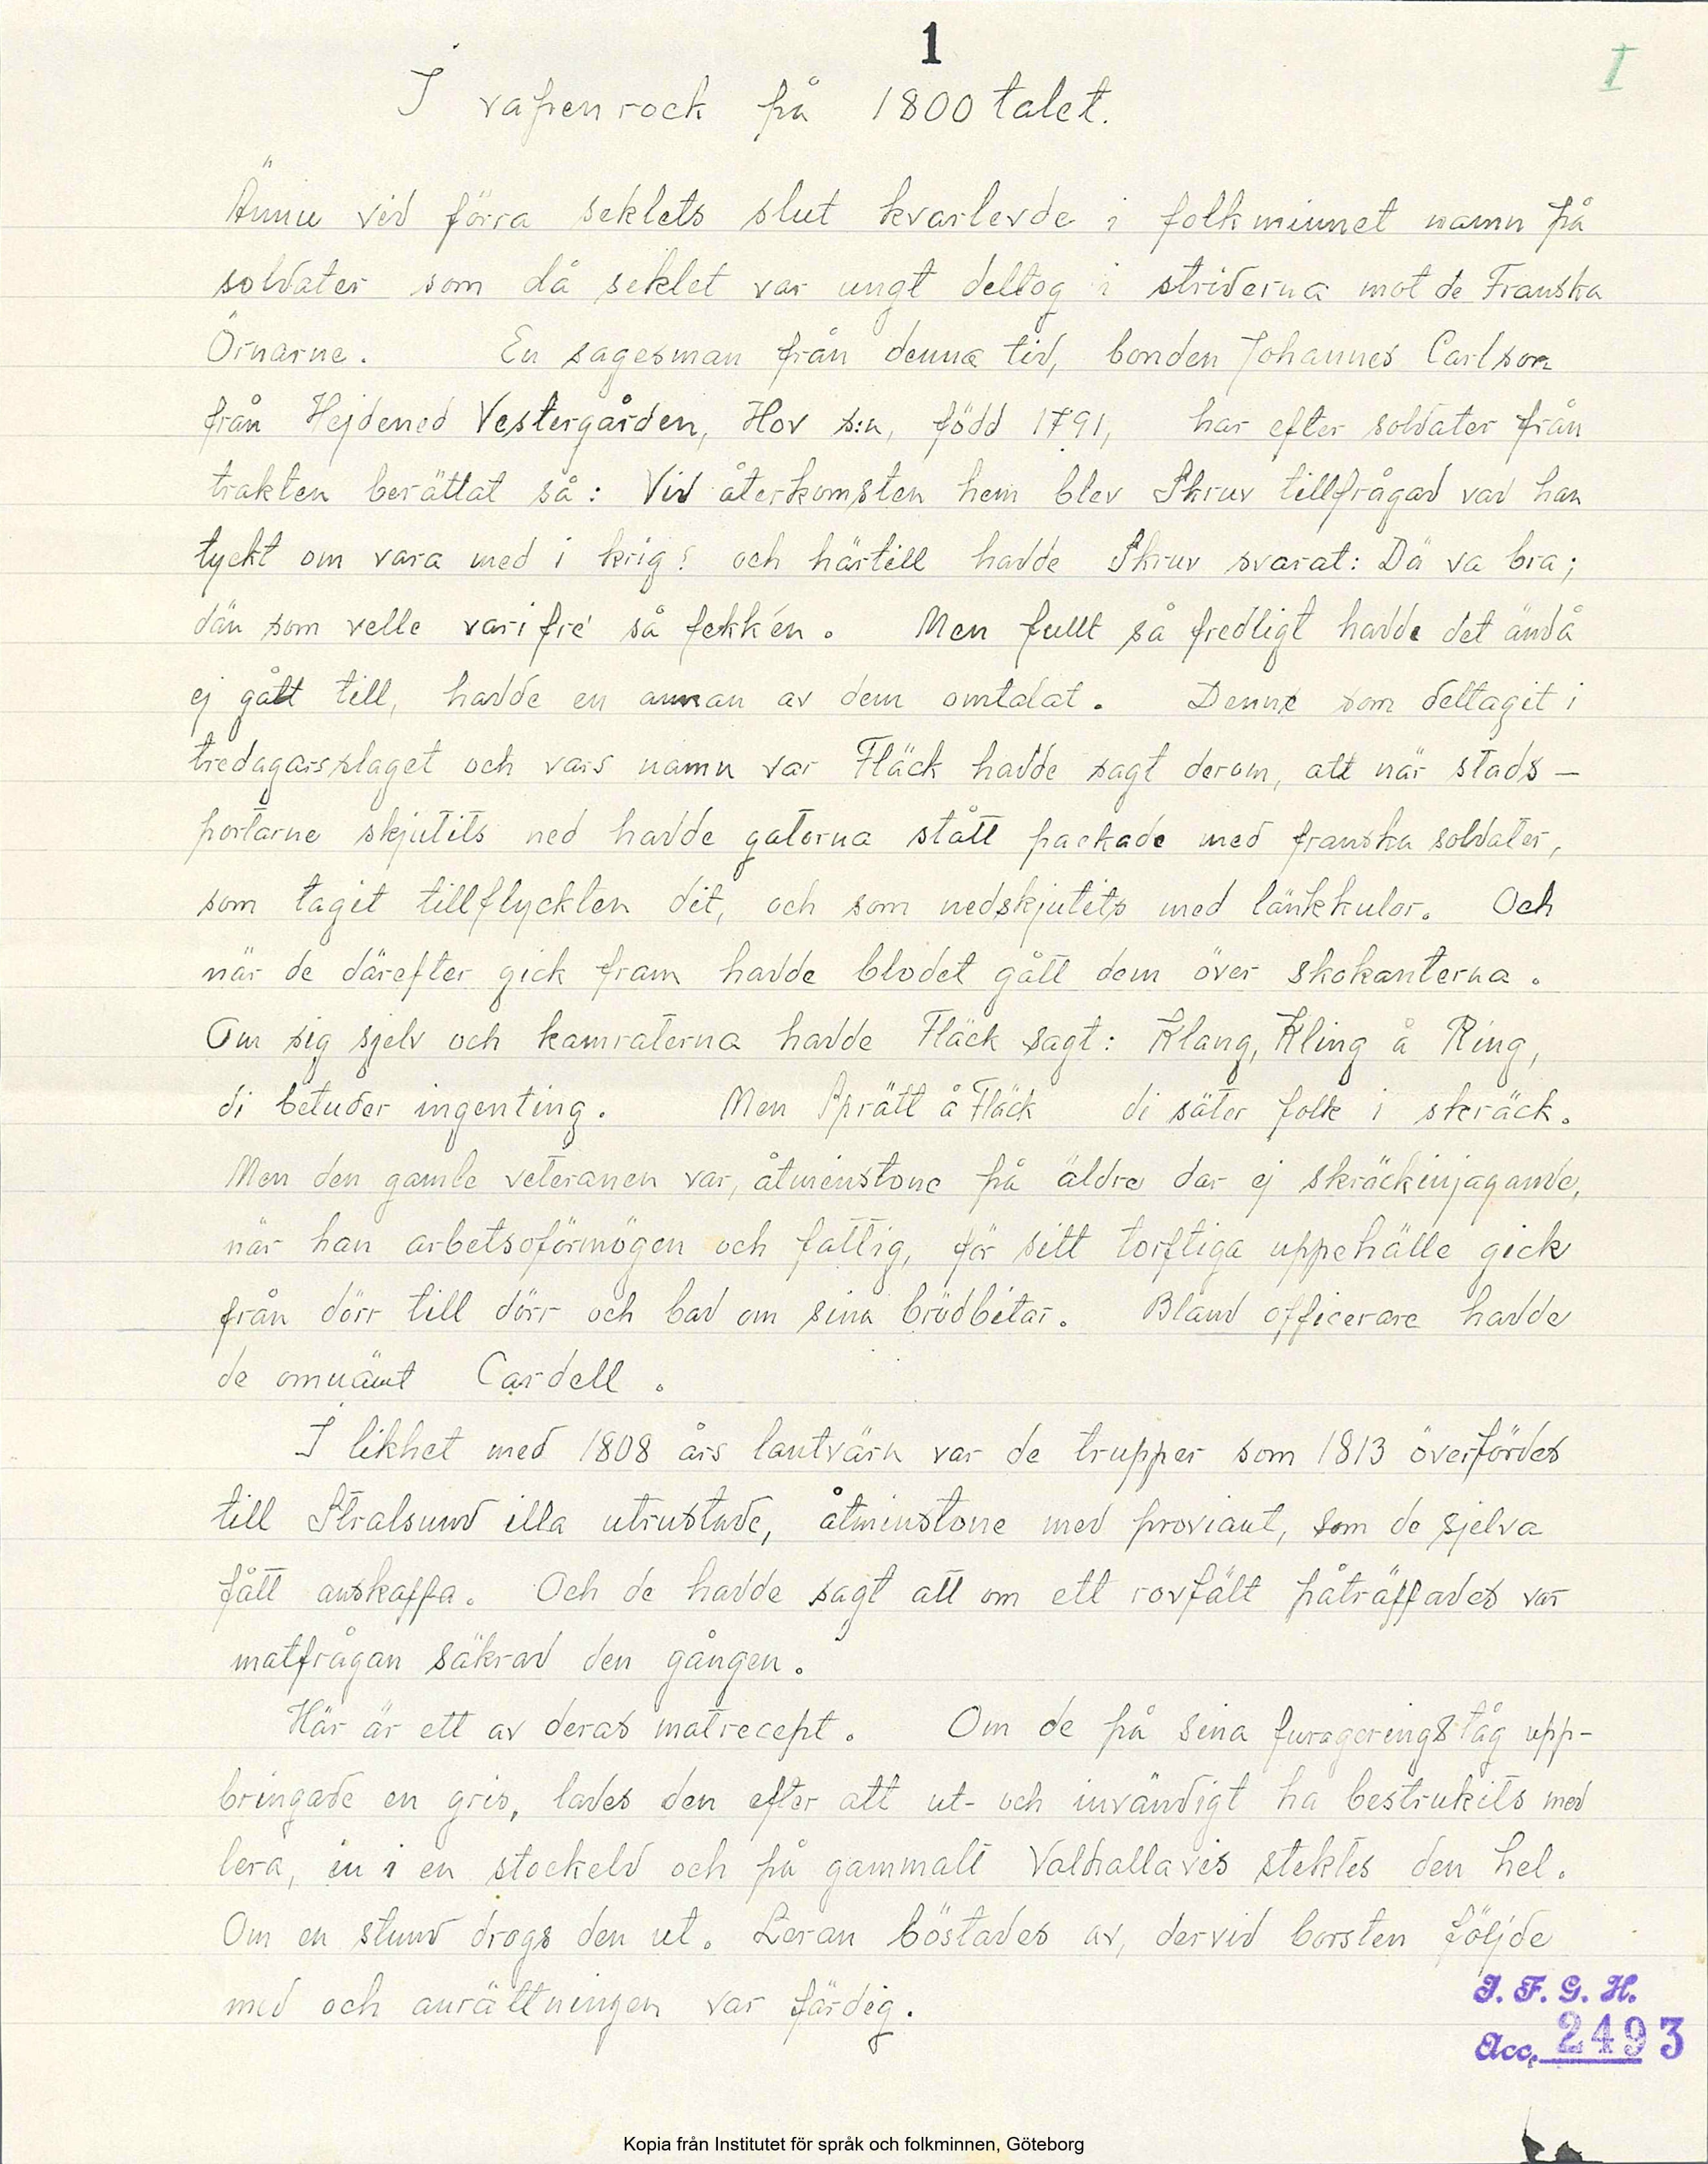 1
I
I vapenrock på 1800 talet.
Ännu vid förra seklets slut kvarlevde i folkminnet namn på
soldater som då seklet var ungt deltog i striderna mot de Franska
Örnarne. En sagesman från denna tid, bonden Johannes Carlson
från Hejdened Vestergården, Hov s:n, född 1791, har efter soldater från
trakten berättat så: Vid återkomsten hem blev Skruv tillfrågad vad han
tyckt om vara med i krig? och härtill hadde Skruv svarat: Dä va bra;
dän som velle vari fre' så fekk én. Men fullt så fredligt hadde det ändå
ej gått till, hadde en annan av dem omtalat. Denne som deltagit i
tredagarsslaget och vars namn var Fläck hadde sagt derom, att när stads-
portarne skjutits ned hadde gatorna stått packade med franska soldater,
som tagit tillflyckten dit, och som nedskjutits med länkkulor. Och
när de därefter gick fram hadde blodet gått dem över skokanterna.
Om sig sjelv och kamraterna hadde Fläck sagt: Klang, Kling å Ring,
di betuder ingenting. Men Sprätt å Fläck di säter folk i skräck.
Men den gamle veteranen var, åtminstone på äldre dar ej skräckinjagande,
när han arbetsoförmögen och fattig, för sitt torftiga uppehälle gick
från dörr till dörr och bad om sina brödbitar. Bland officerare hadde
de omnämt Cardell.
I likhet med 1808 års lantvärn var de trupper som 1813 överfördes
till Stralsund illa utrustade, åtminstone med proviant, som de sjelva
fått anskaffa. Och de hadde sagt att om ett rovfält påträffades var
matfrågan säkrad den gången.
Här är ett av deras matrecept. Om de på sina furageringståg upp-
bringade en gris, lades den efter att ut- och invändigt ha bestrukits med
lera, in i en stockeld och på gammalt Valhallavis stektes den hel.
Om en stund drogs den ut. Leran böstades av, dervid borsten följde
med och anrättningen var färdig.
I. F. G. H.
Acc. 2493
Kopia från Institutet för språk och folkminnen, Göteborg